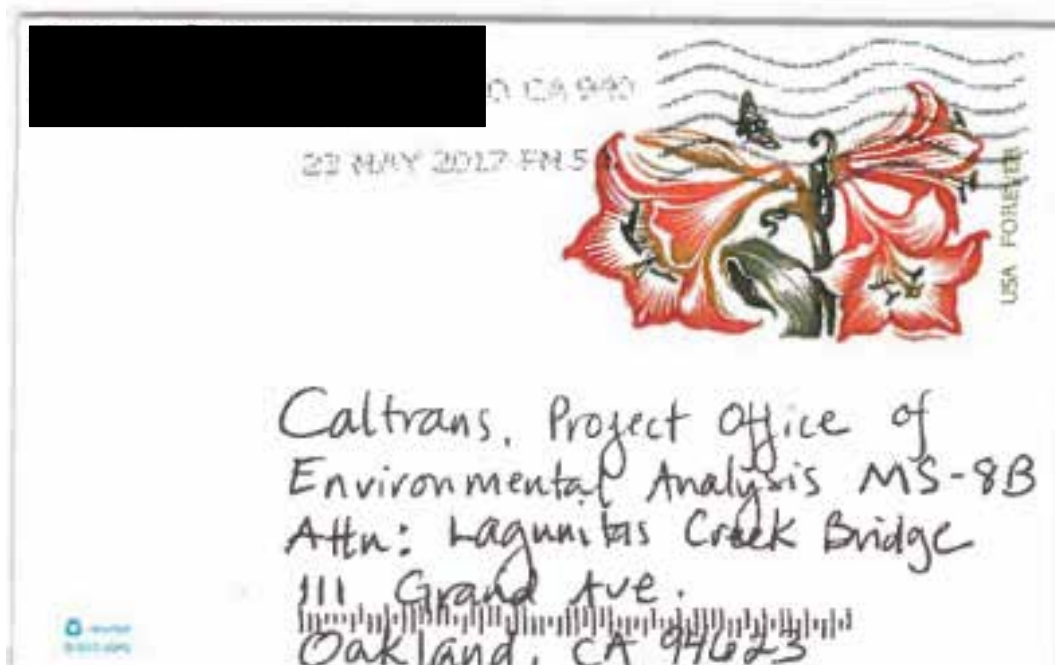 CA 940
22 MAY 2017 PM 5
USA FOREVER
Caltrans, Project Office of
Environmental Analysis MS-8B
Attn: Lagunitas Creek Bridge
111 Grand Ave.
Oakland, CA 94623